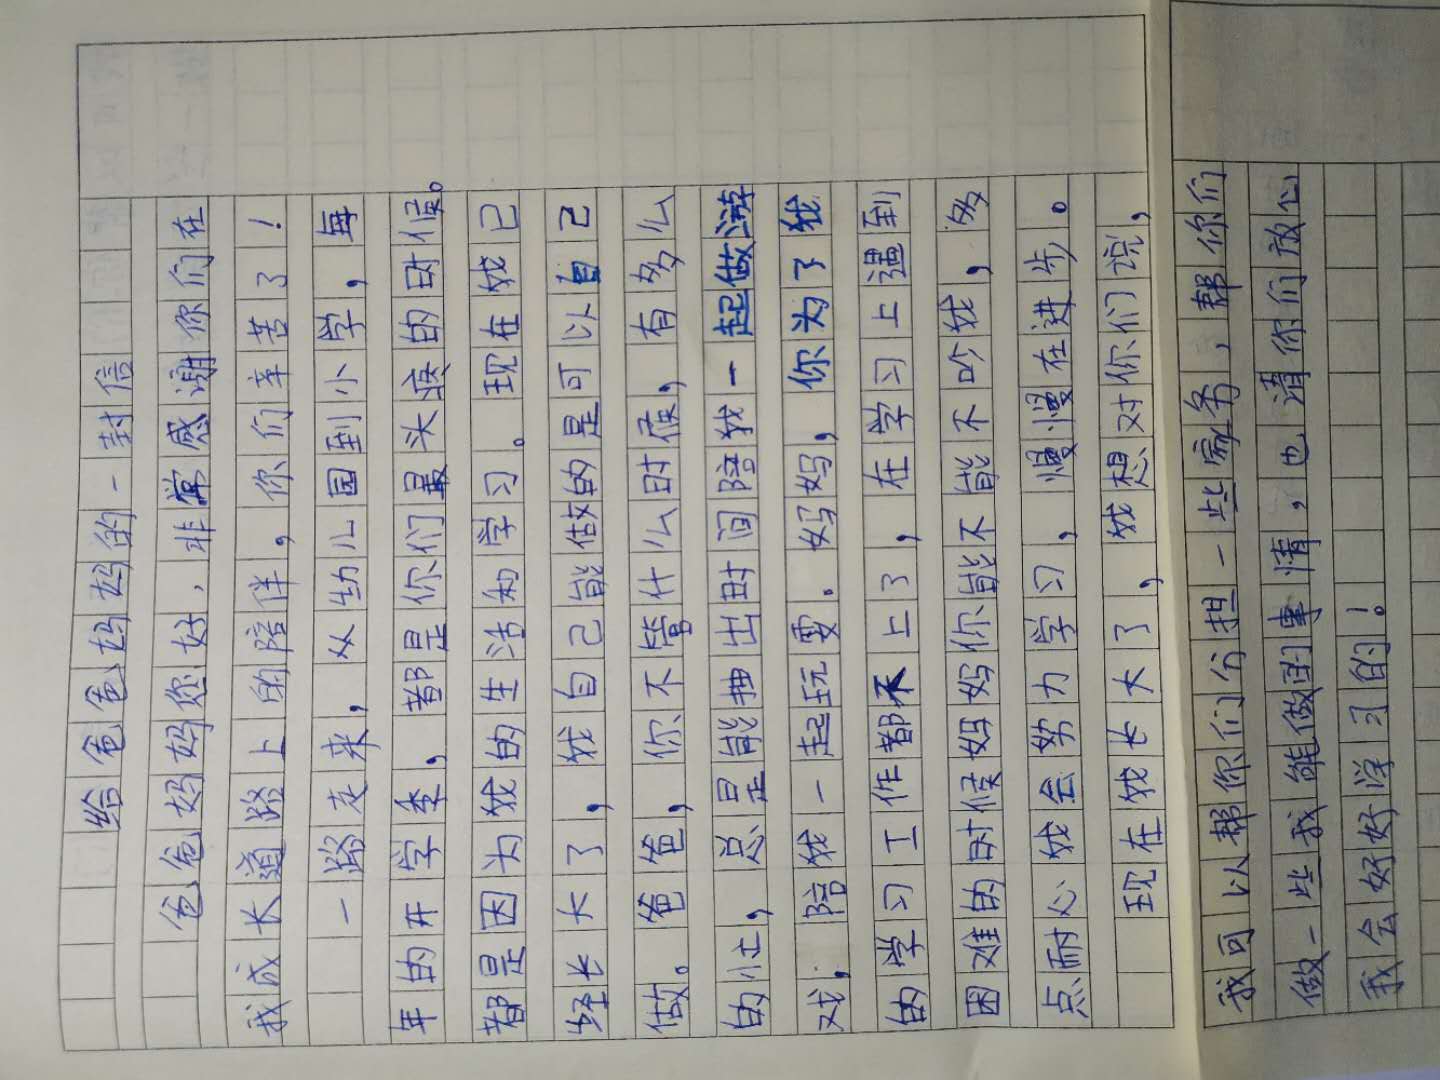 给爸爸妈妈的一封信
爸爸妈妈您好，非常感谢你们在
我成长道路上的陪伴，你们辛苦了！
一路走来，从幼儿园到小学，每
年的开学季，都是你们最头疼的时候。
都是因为我的生活和学习。现在我已
经长大了，我自己能做的是可以自己
做。爸爸，你不管什么时候，有多么
的忙，总是能抽出时间陪我一起做游
戏，陪我一起玩耍。妈妈，你为了我
的学习工作都不上了，在学习上遇到
困难的时候妈妈你能不能不吵我，多
点耐心我会努力学习，慢慢在进步。
现在我长大了，我想对你们说，
我可以帮你们分担一些家务，帮你们
做一些我能做的事情，也请你们放心
我会好好学习的！